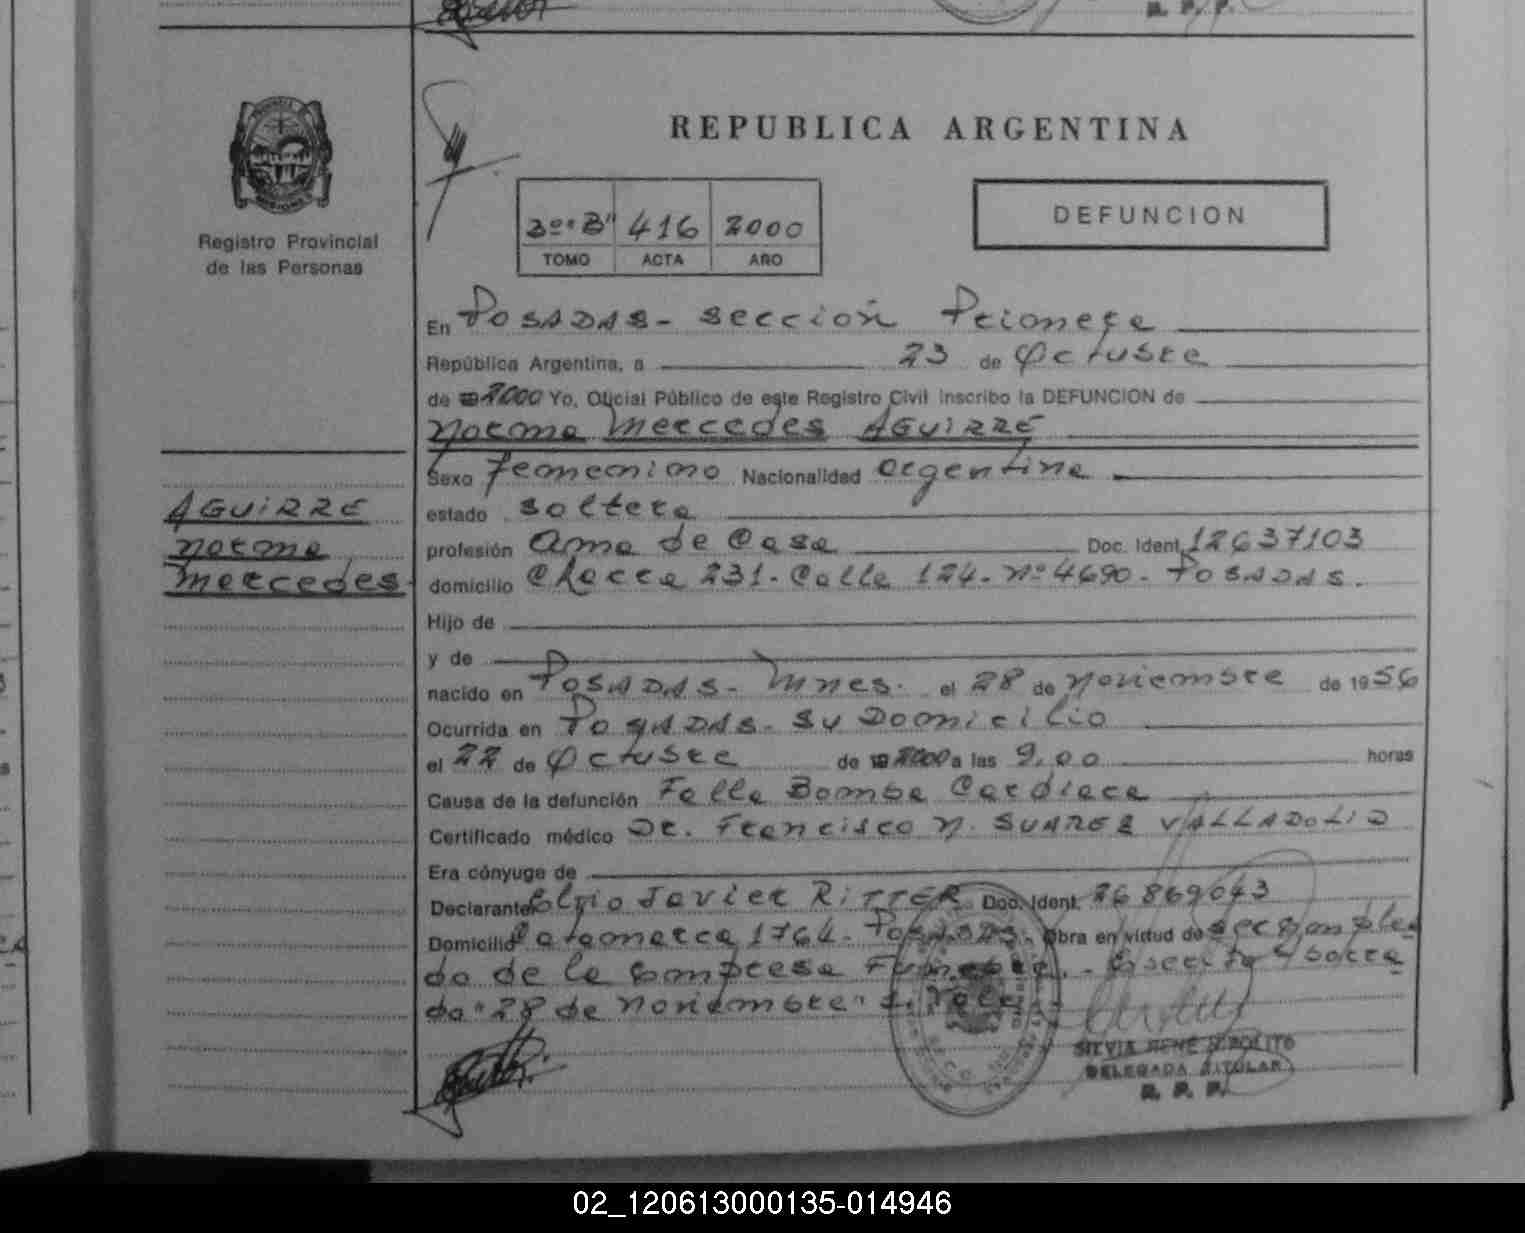 REPUBLICA ARGENTINA
Registro Provincial
de las Personas
3º "B" 416 2000
TOMO ACTA AÑO
DEFUNCION
En POSADAS - Sección Primera
República Argentina, a 23 de Octubre
de 2000 Yo, Oficial Público de este Registro Civil inscribo la DEFUNCION de
Norma Mercedes AGUIRRE
Sexo Femenino Nacionalidad argentina
AGUIRRE
Norma
Mercedes
estado Soltera
profesión Ama de Casa Doc. Ident. 12637103
domicilio Chacra 231 - Calle 124 - Nº 4690 - POSADAS.
Hijo de
y de
nacido en POSADAS - Mnes. el 28 de Noviembre de 1956
Ocurrida en POSADAS - su Domicilio
el 22 de Octubre de 2000 a las 9,00 horas
Causa de la defunción Falla Bomba Cardiaca
Certificado médico Dr. Francisco N. SUAREZ VALLADOLID
Era cónyuge de
Declarante Elvio Javier RITTER Doc. Ident. 26869043
Domicilio Catamarca 1764 - POSADAS. Obra en virtud de ser emplea
do de la Empresa Funebre. -
do "28 de Noviembre"
SILVIA RENE HIPOLITO
DELEGADA TITULAR
R. P. P.
R. P. P.
02_120613000135-014946